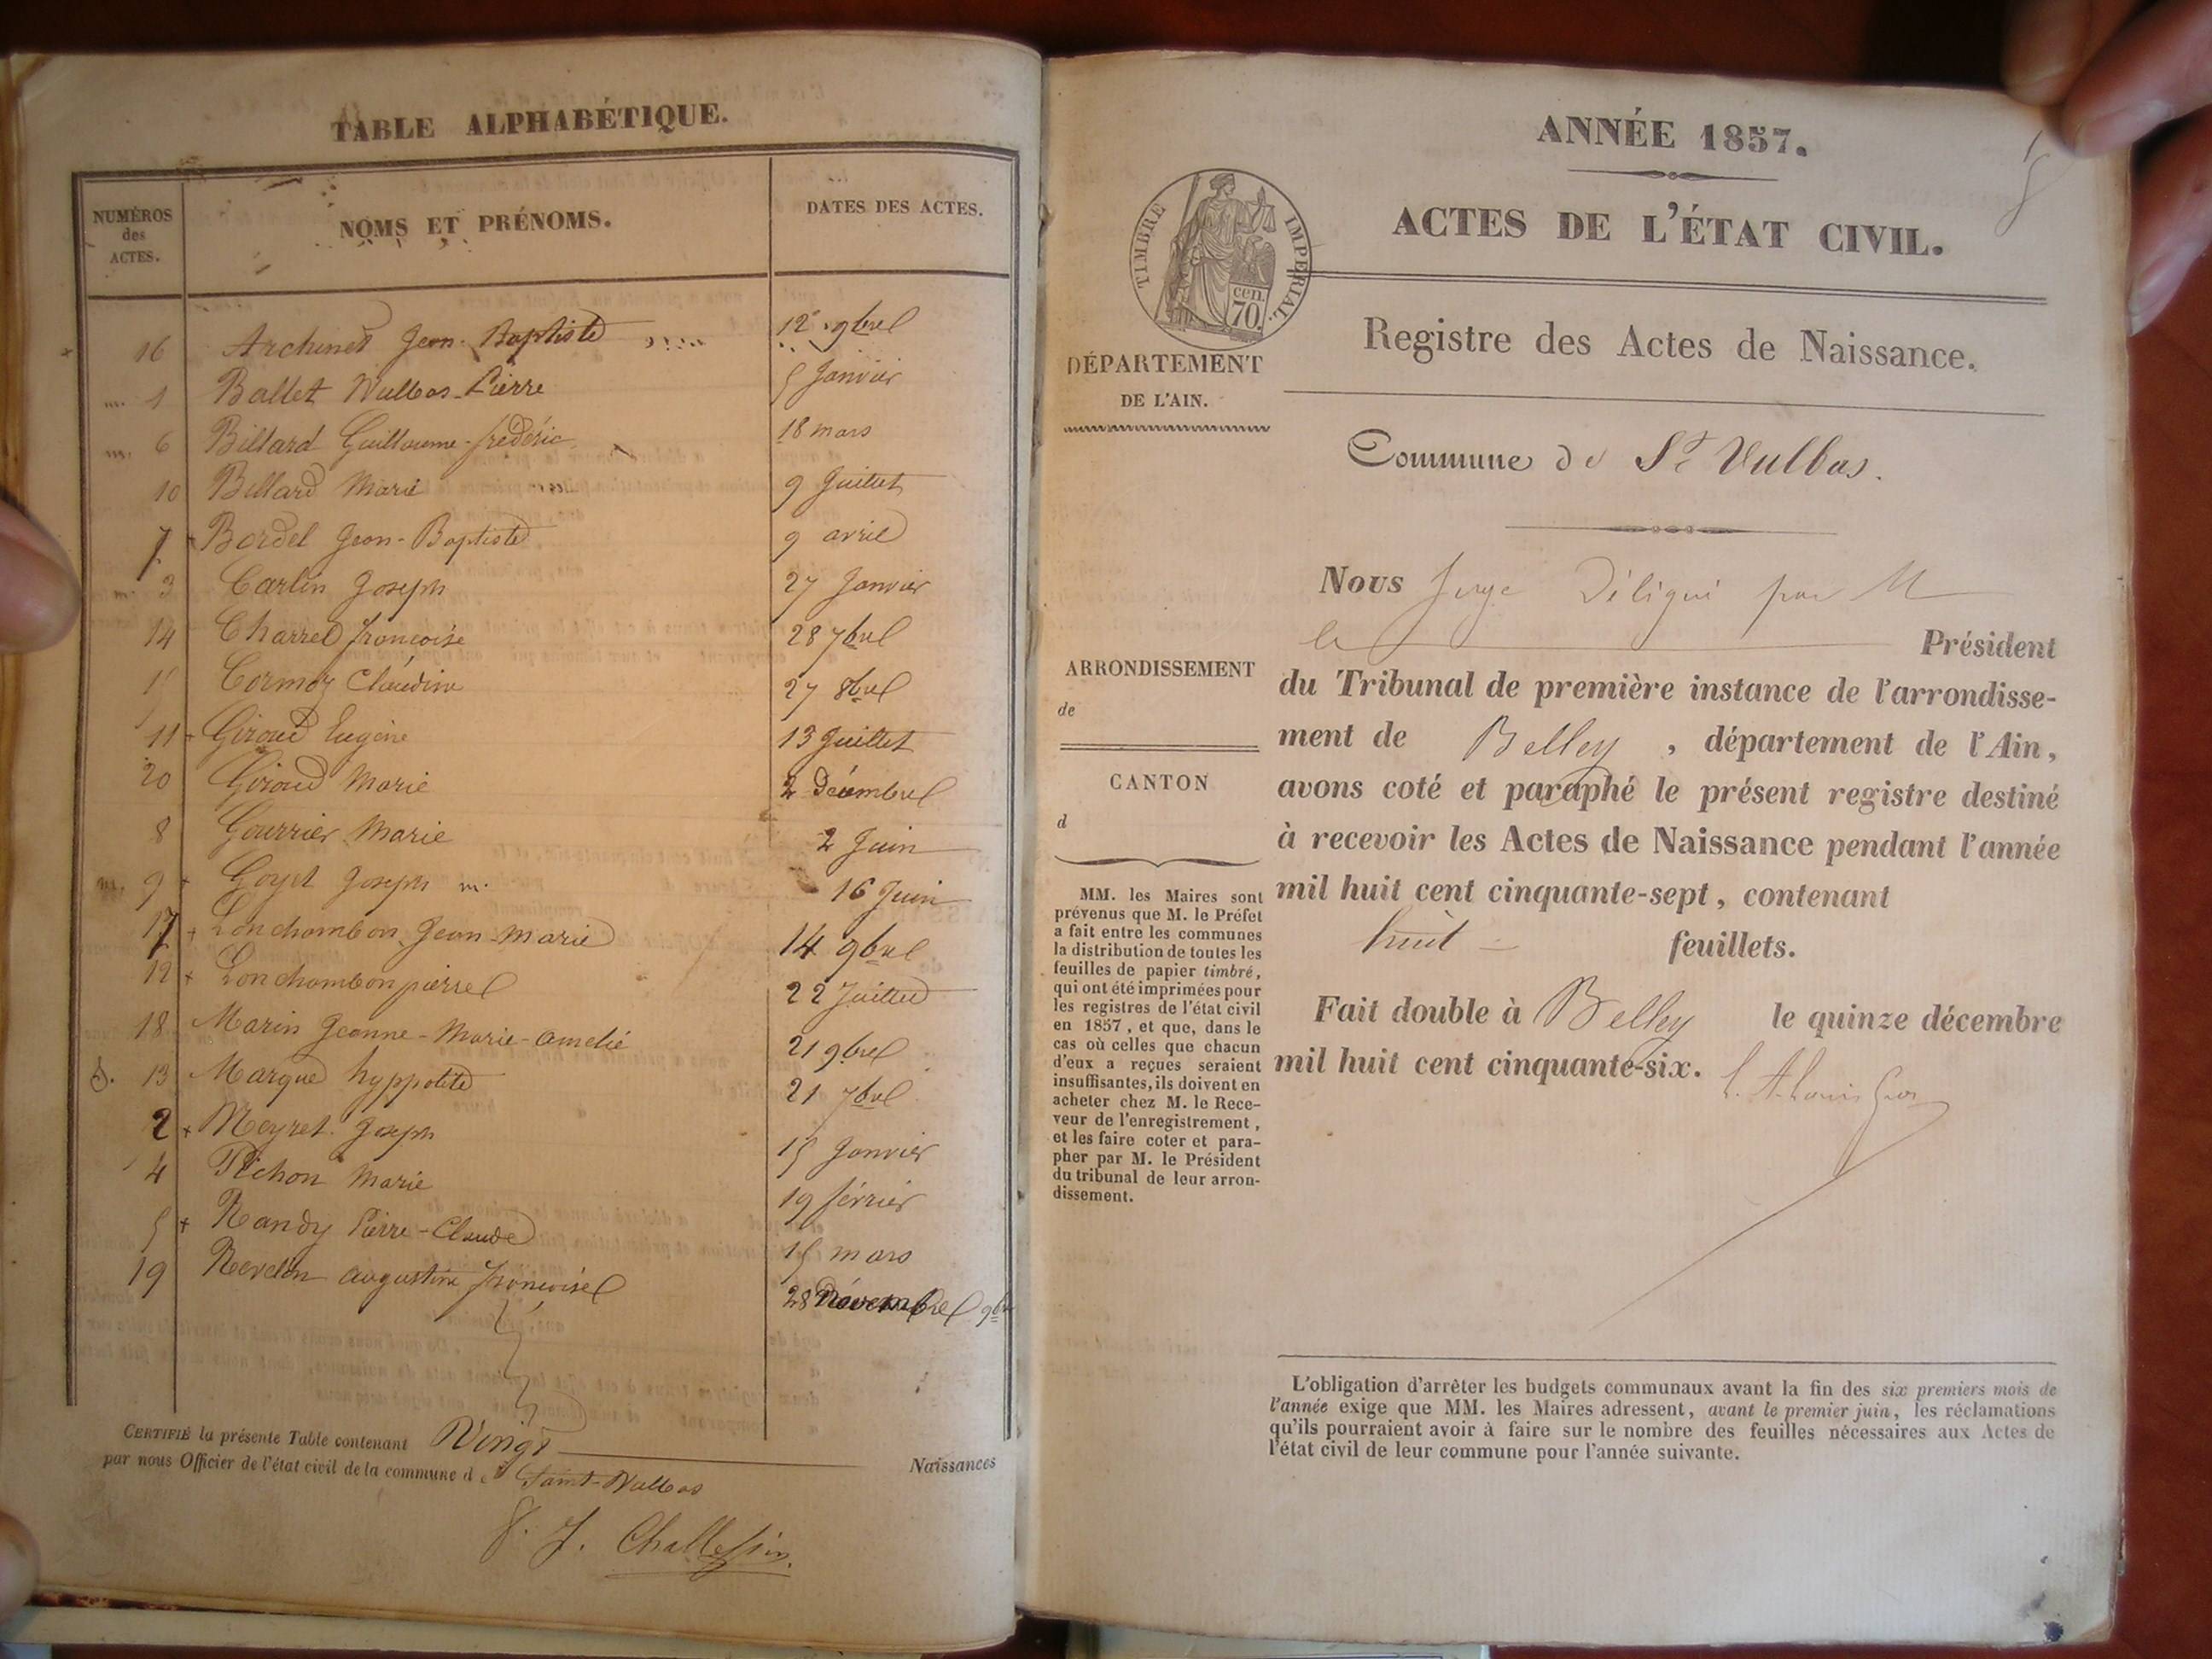 TABLE ALPHABÉTIQUE.
NUMÉROS des ACTES.
NOMS ET PRÉNOMS.
DATES DES ACTES.
16 Archinet Jean-Baptiste 12 9bre
m. 1 Ballet Wulbas-Pierre 5 Janvier
m. 6 Billard Guillaume-frédéric 18 mars
10 Billard Marie 9 Juillet
7 + Bordel Jean-Baptiste 9 avril
m. 3 Carlin Joseph 27 Janvier
14 Charrel françoise 28 7bre
15 Cormoz Claudine 27 8bre
11 + Giroud Eugène 13 Juillet
20 Giroud Marie 2 Décembre
8 Gourrier Marie 2 Juin
m. 9 + Goyet Joseph m. 16 Juin
17 + Lonchambon Jean-Marie 14 9bre
12 + Lonchambon pierre 22 Juillet
18 Marin Jeanne-Marie-amelie 21 9bre
13 Margue hyppolite 21 7bre
2 + Meyret Joseph 15 Janvier
4 Pichon Marie 19 février
5 + Randy Pierre-Claude 15 mars
19 Revelin augustine françoise 28 9bre
CERTIFIÉ la présente Table contenant Vingt Naissances
par nous Officier de l'état civil de la commune de Saint-Wulbas
ANNÉE 1857.
ACTES DE L'ÉTAT CIVIL.
TIMBRE IMPERIAL.
cen.
70.
Registre des Actes de Naissance.
DÉPARTEMENT
DE L'AIN.
Commune de St Vulbas.
Nous Juge Délégué par M
le Président
du Tribunal de première instance de l'arrondisse-
ment de Belley, département de l'Ain,
avons coté et paraphé le présent registre destiné
à recevoir les Actes de Naissance pendant l'année
mil huit cent cinquante-sept, contenant
huit feuillets.
Fait double à Belley le quinze décembre
mil huit cent cinquante-six.
ARRONDISSEMENT
de
CANTON
d
MM. les Maires sont
prévenus que M. le Préfet
a fait entre les communes
la distribution de toutes les
feuilles de papier timbré,
qui ont été imprimées pour
les registres de l'état civil
en 1857, et que, dans le
cas où celles que chacun
d'eux a reçues seraient
insuffisantes, ils doivent en
acheter chez M. le Rece-
veur de l'enregistrement,
et les faire coter et para-
pher par M. le Président
du tribunal de leur arron-
dissement.
L'obligation d'arrêter les budgets communaux avant la fin des six premiers mois de
l'année exige que MM. les Maires adressent, avant le premier juin, les réclamations
qu'ils pourraient avoir à faire sur le nombre des feuilles nécessaires aux Actes de
l'état civil de leur commune pour l'année suivante.